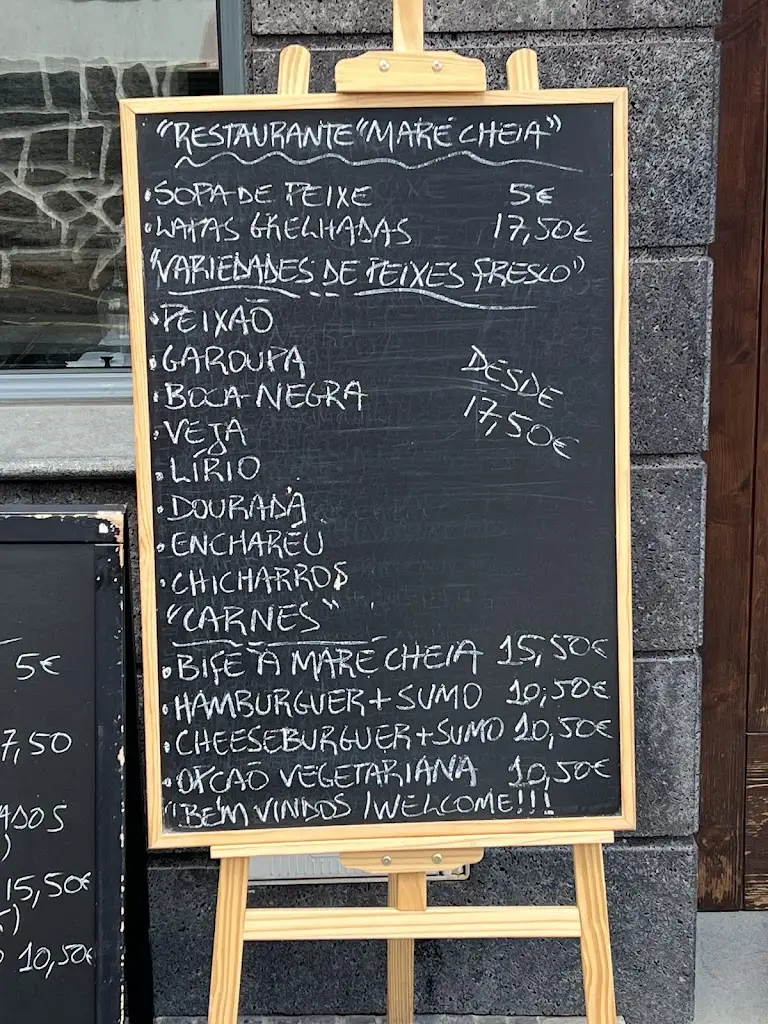 "RESTAURANTE "MARÉ CHEIA"
• SOPA DE PEIXE 5€
• LAPAS GRELHADAS 17,50€
"VARIEDADES DE PEIXES FRESCO"
• PEIXAO
• GAROUPA
• BOCA-NEGRA
• VEJA
• LÍRIO
• DOURADA
• ENCHAREU
• CHICHARROS
DESDE
17,50€
"CARNES"
• BIFE À MARÉ CHEIA 15,50€
• HAMBURGUER + SUMO 10,50€
• CHEESEBURGUER + SUMO 10,50€
• OPCAO VEGETARIANA 10,50€
"BEM VINDOS / WELCOME!!!
5€
7,50
ADOS
)
15,50€
)
10,50€